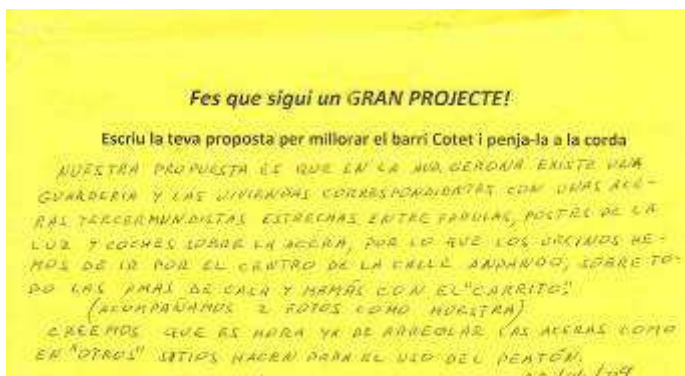 Fes que sigui un GRAN PROJECTE!
Escriu la teva proposta per millorar el barri Cotet i penja-la a la corda
NUESTRA PROPUESTA ES QUE EN LA AVD. GERONA EXISTE UNA
GUARDERIA Y LAS VIVIENDAS CORRESPONDIENTES CON UNAS ACE-
RAS TERCERMUNDISTAS ESTRECHAS ENTRE FAROLAS, POSTES DE LA
LUZ Y COCHES SOBRE LA ACERA, POR LO QUE LOS VECINOS HE-
MOS DE IR POR EL CENTRO DE LA CALLE ANDANDO, SOBRE TO-
DO LAS AMAS DE CASA Y MAMÁS CON EL "CARRITO".
(ACOMPAÑAMOS 2 FOTOS COMO MUESTRA)
CREEMOS QUE ES HORA YA DE ARREGLAR LAS ACERAS COMO
EN "OTROS" SITIOS HACEN PARA EL USO DEL PEATÓN.